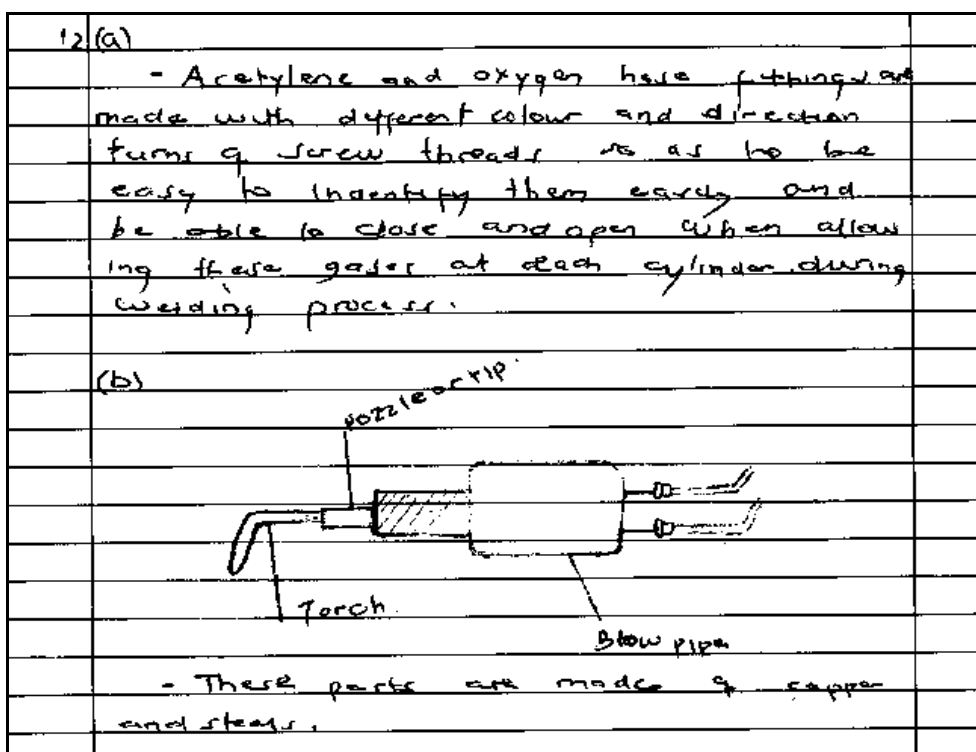 12 (a)
- Acetylene and oxygen hose fittings are
made with different colour and direction
turns of screw threads so as to be
easy to indentify them easly and
be able to close and open when allow
ing these gases at each cylinder during
welding process.
(b)
Nozzle or tip.
Torch
Blow pipe
- These parts are made of copper
and steels.